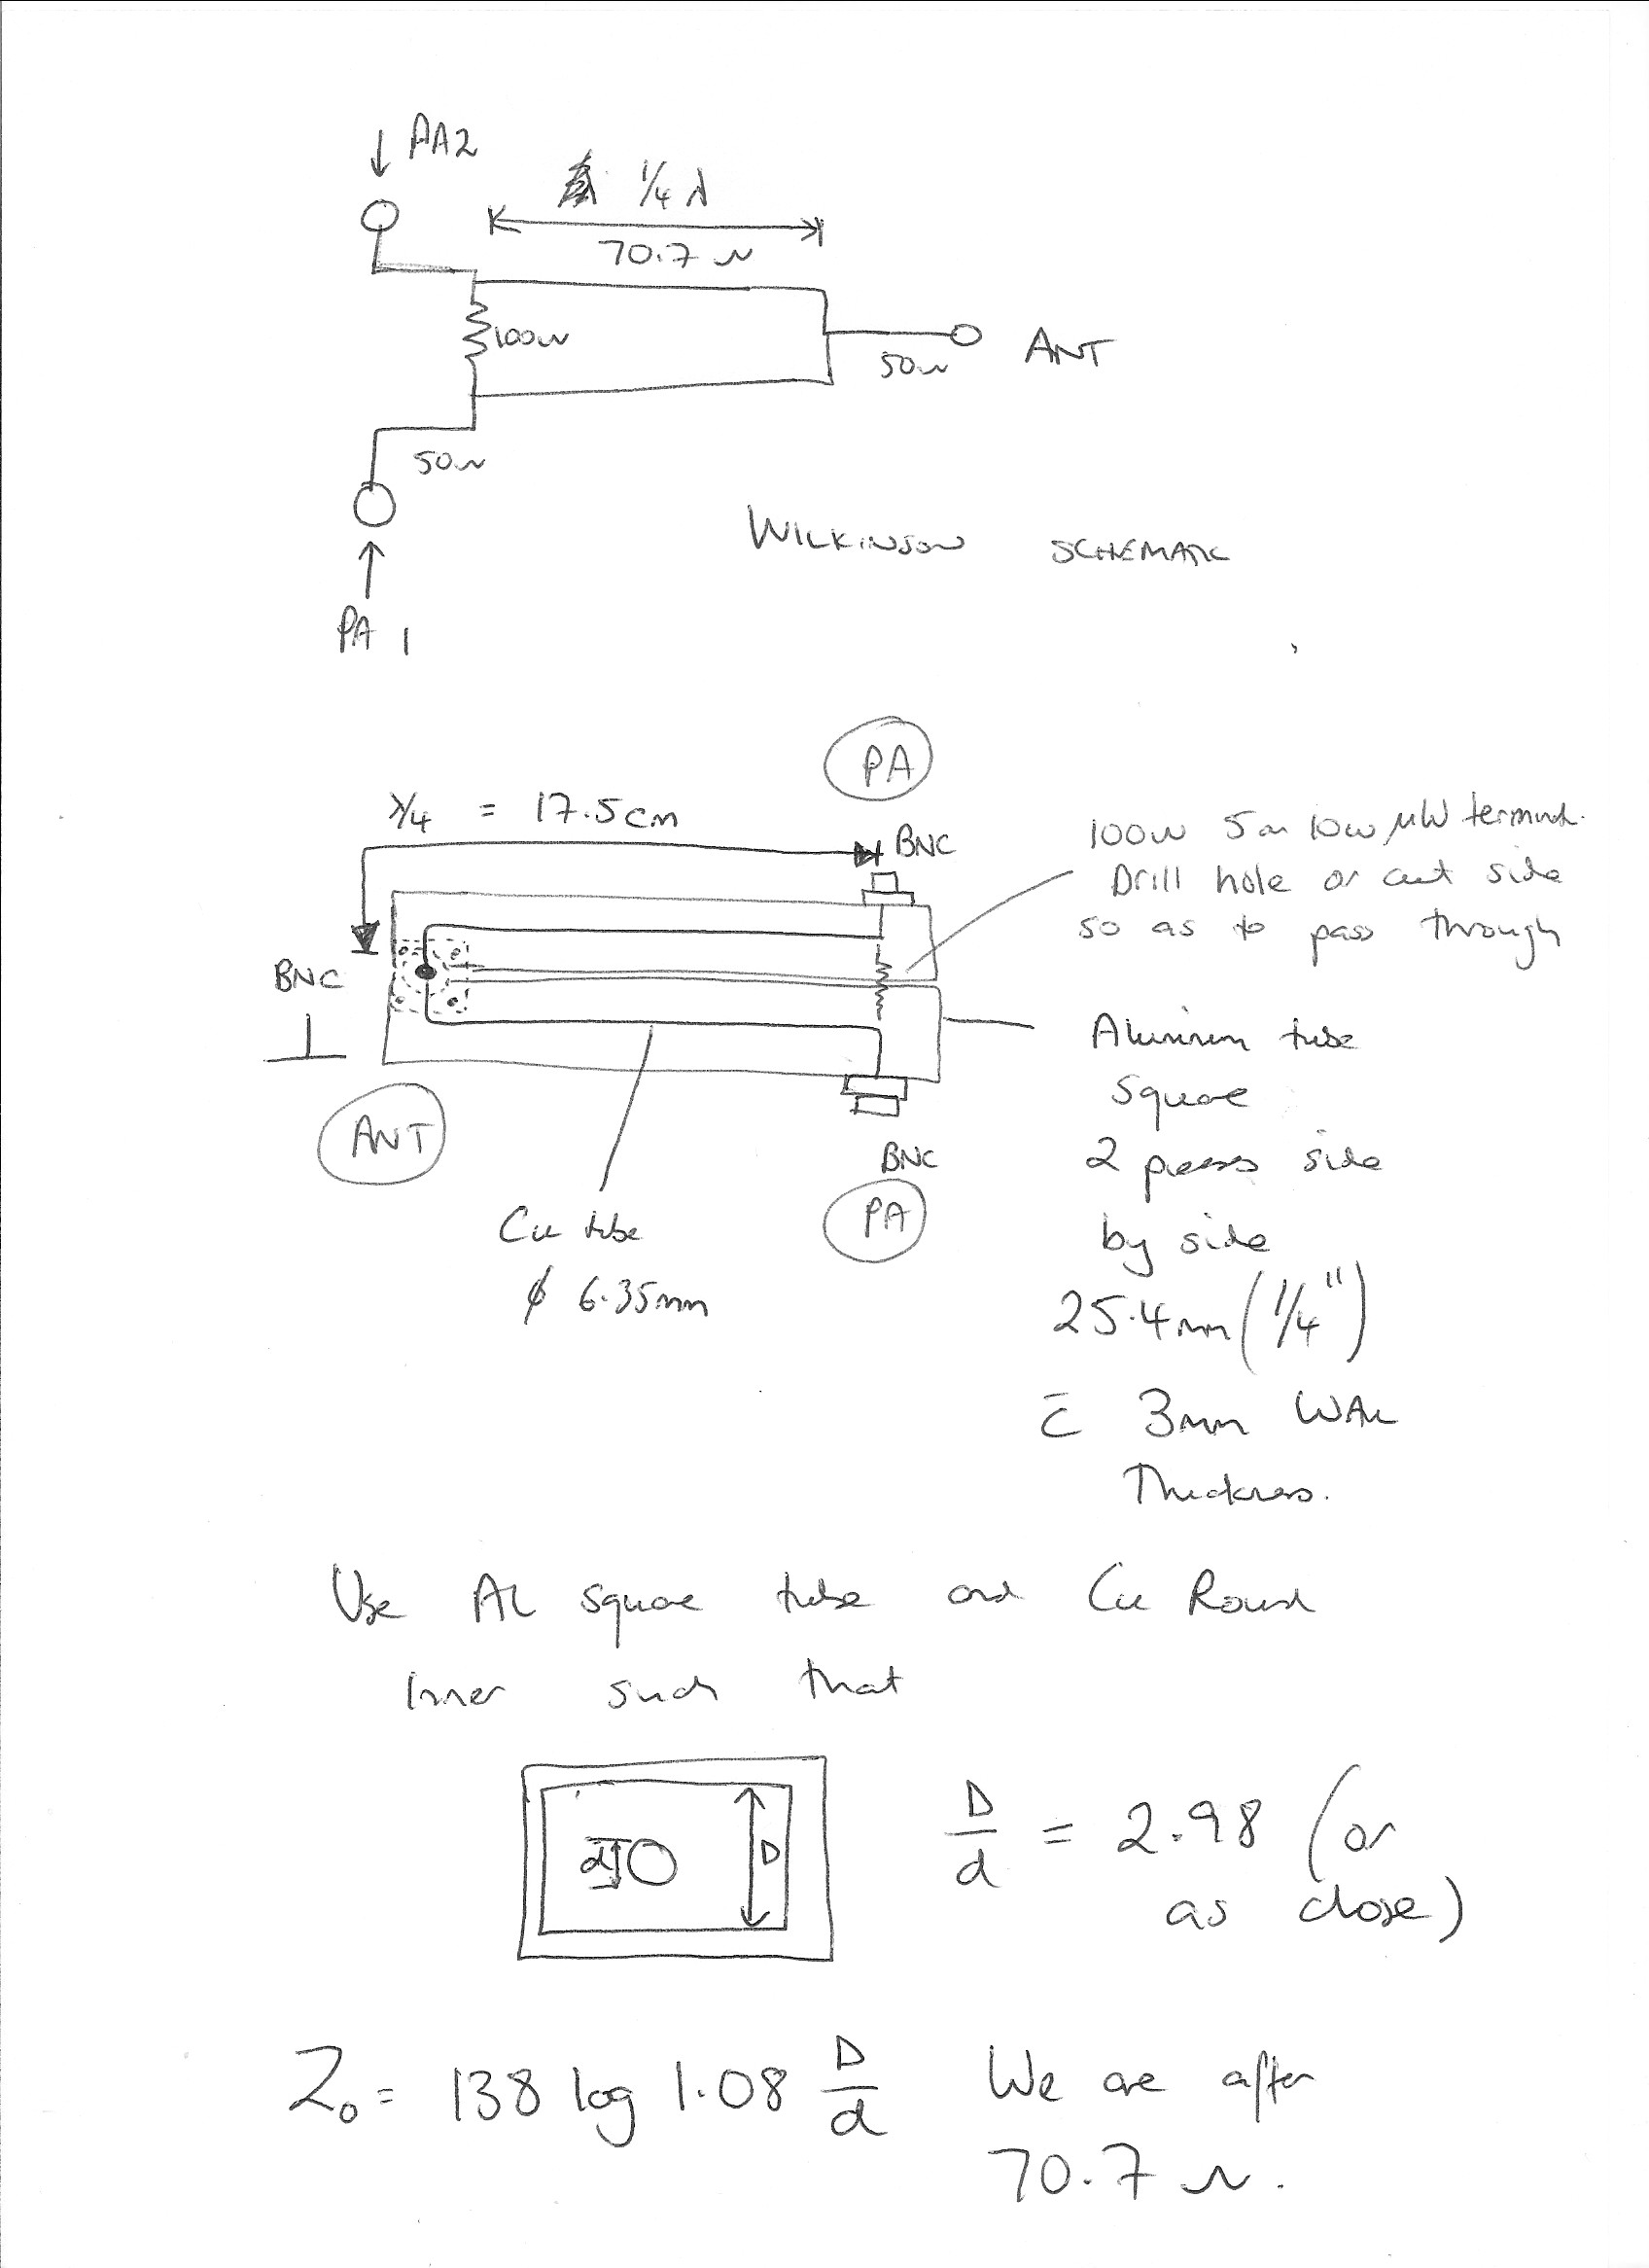 PA2
1/4 λ
70.7 Ω
100Ω
50Ω
ANT
50Ω
WILKINSON SCHEMATIC
PA 1
PA
λ/4 = 17.5cm
BNC
100Ω 5 or 10W μW terminat.
Drill hole or cut side
so as to pass through
BNC
Aluminum tube
Square
2 pieces side
by side
25.4mm (1/4")
c̄ 3mm WALL
Thickness.
ANT
BNC
PA
Cu tube
ϕ 6.35mm
Use AL square tube and Cu Round
Inner such that
d
D
D/d = 2.98 (or
as close)
Z₀ = 138 log 1.08 D/d
We are after
70.7 Ω.